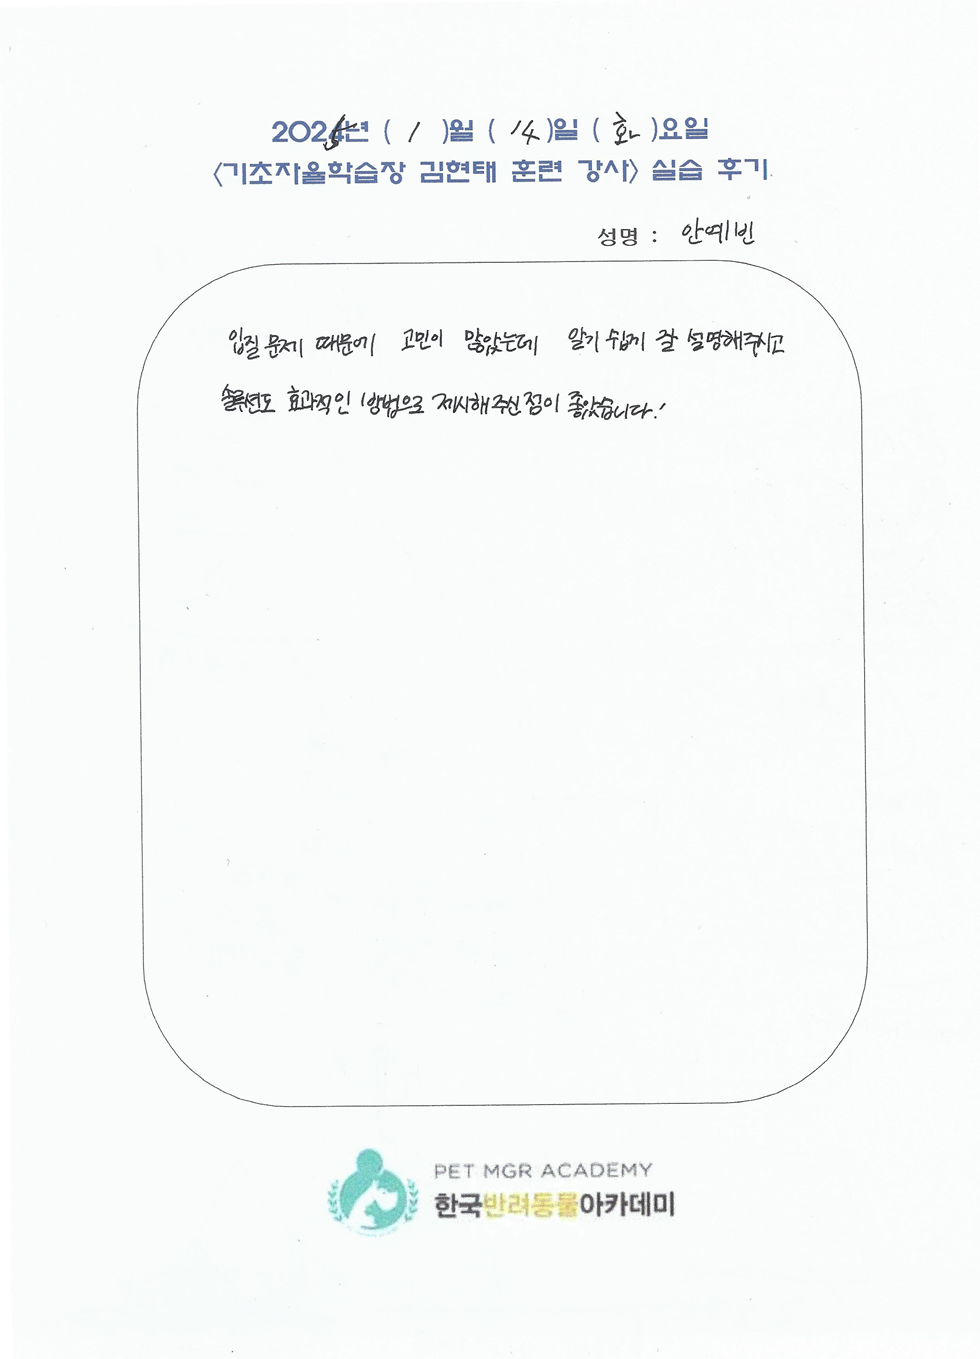 2025년 ( 1 )월 ( 14 )일 ( 화 )요일
<기초자율학습장 김현태 훈련 강사> 실습 후기
성명 : 안예빈
입질 문제 때문에 고민이 많았는데 알기 쉽게 잘 설명해주시고
솔루션도 효과적인 방법으로 제시해주신 점이 좋았습니다!
PET MGR ACADEMY
한국반려동물아카데미